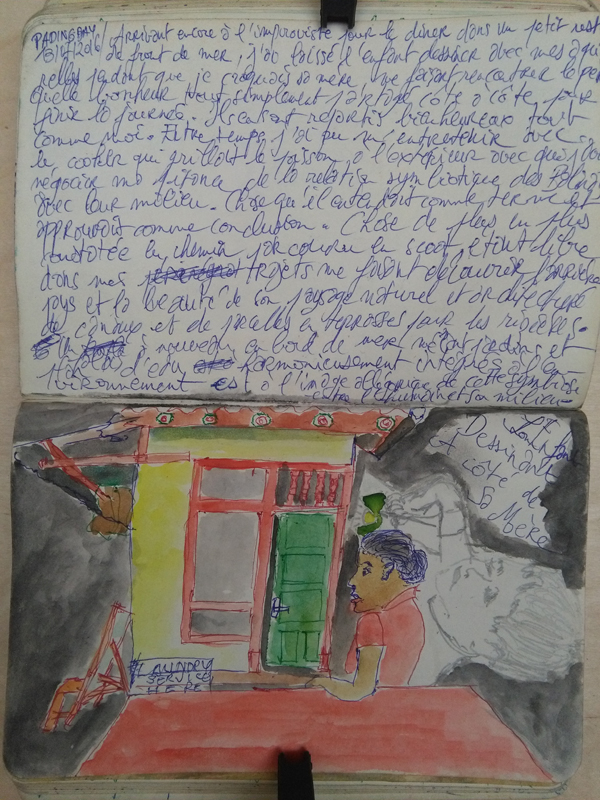 PADINGBAY Arrivant encore à l'improviste pour le dîner dans un petit rest
de front de mer, j'ai laissé l'enfant dessiner avec mes aqua
relles pendant que je croquais sa mère, me faisant rencontrer le père
Quelle bonheur tout simplement partagé côte à côte pour
finir la journée. Ils sont repartis bienheureux tout
comme moi. Entre temps j'ai pu m'entretenir avec
le cooker qui grillait le poisson à l'extérieur avec qui j'ai
négocier ma de la relation symbiotique des
avec leur milieu. Chose qu'il entendait comme terme et
approuvait comme conclusion. Chose de plus en plus
constatée en chemin, parcouru en scoot, et tout libre
dans mes trajets me faisant découvrir l'arrière
pays et la beauté de son paysage naturel et architecturé
de canaux et de parcelles en terrasses pour les rizières.
à nouveau en bord de mer jardins et
d'eau harmonieusement intégrés à l'en-
vironnement est à l'image de cette symbiose
entre l'humain et son milieu
Dessinant
à côté de
sa
Mère
LAUNDRY
SERVICE
HERE